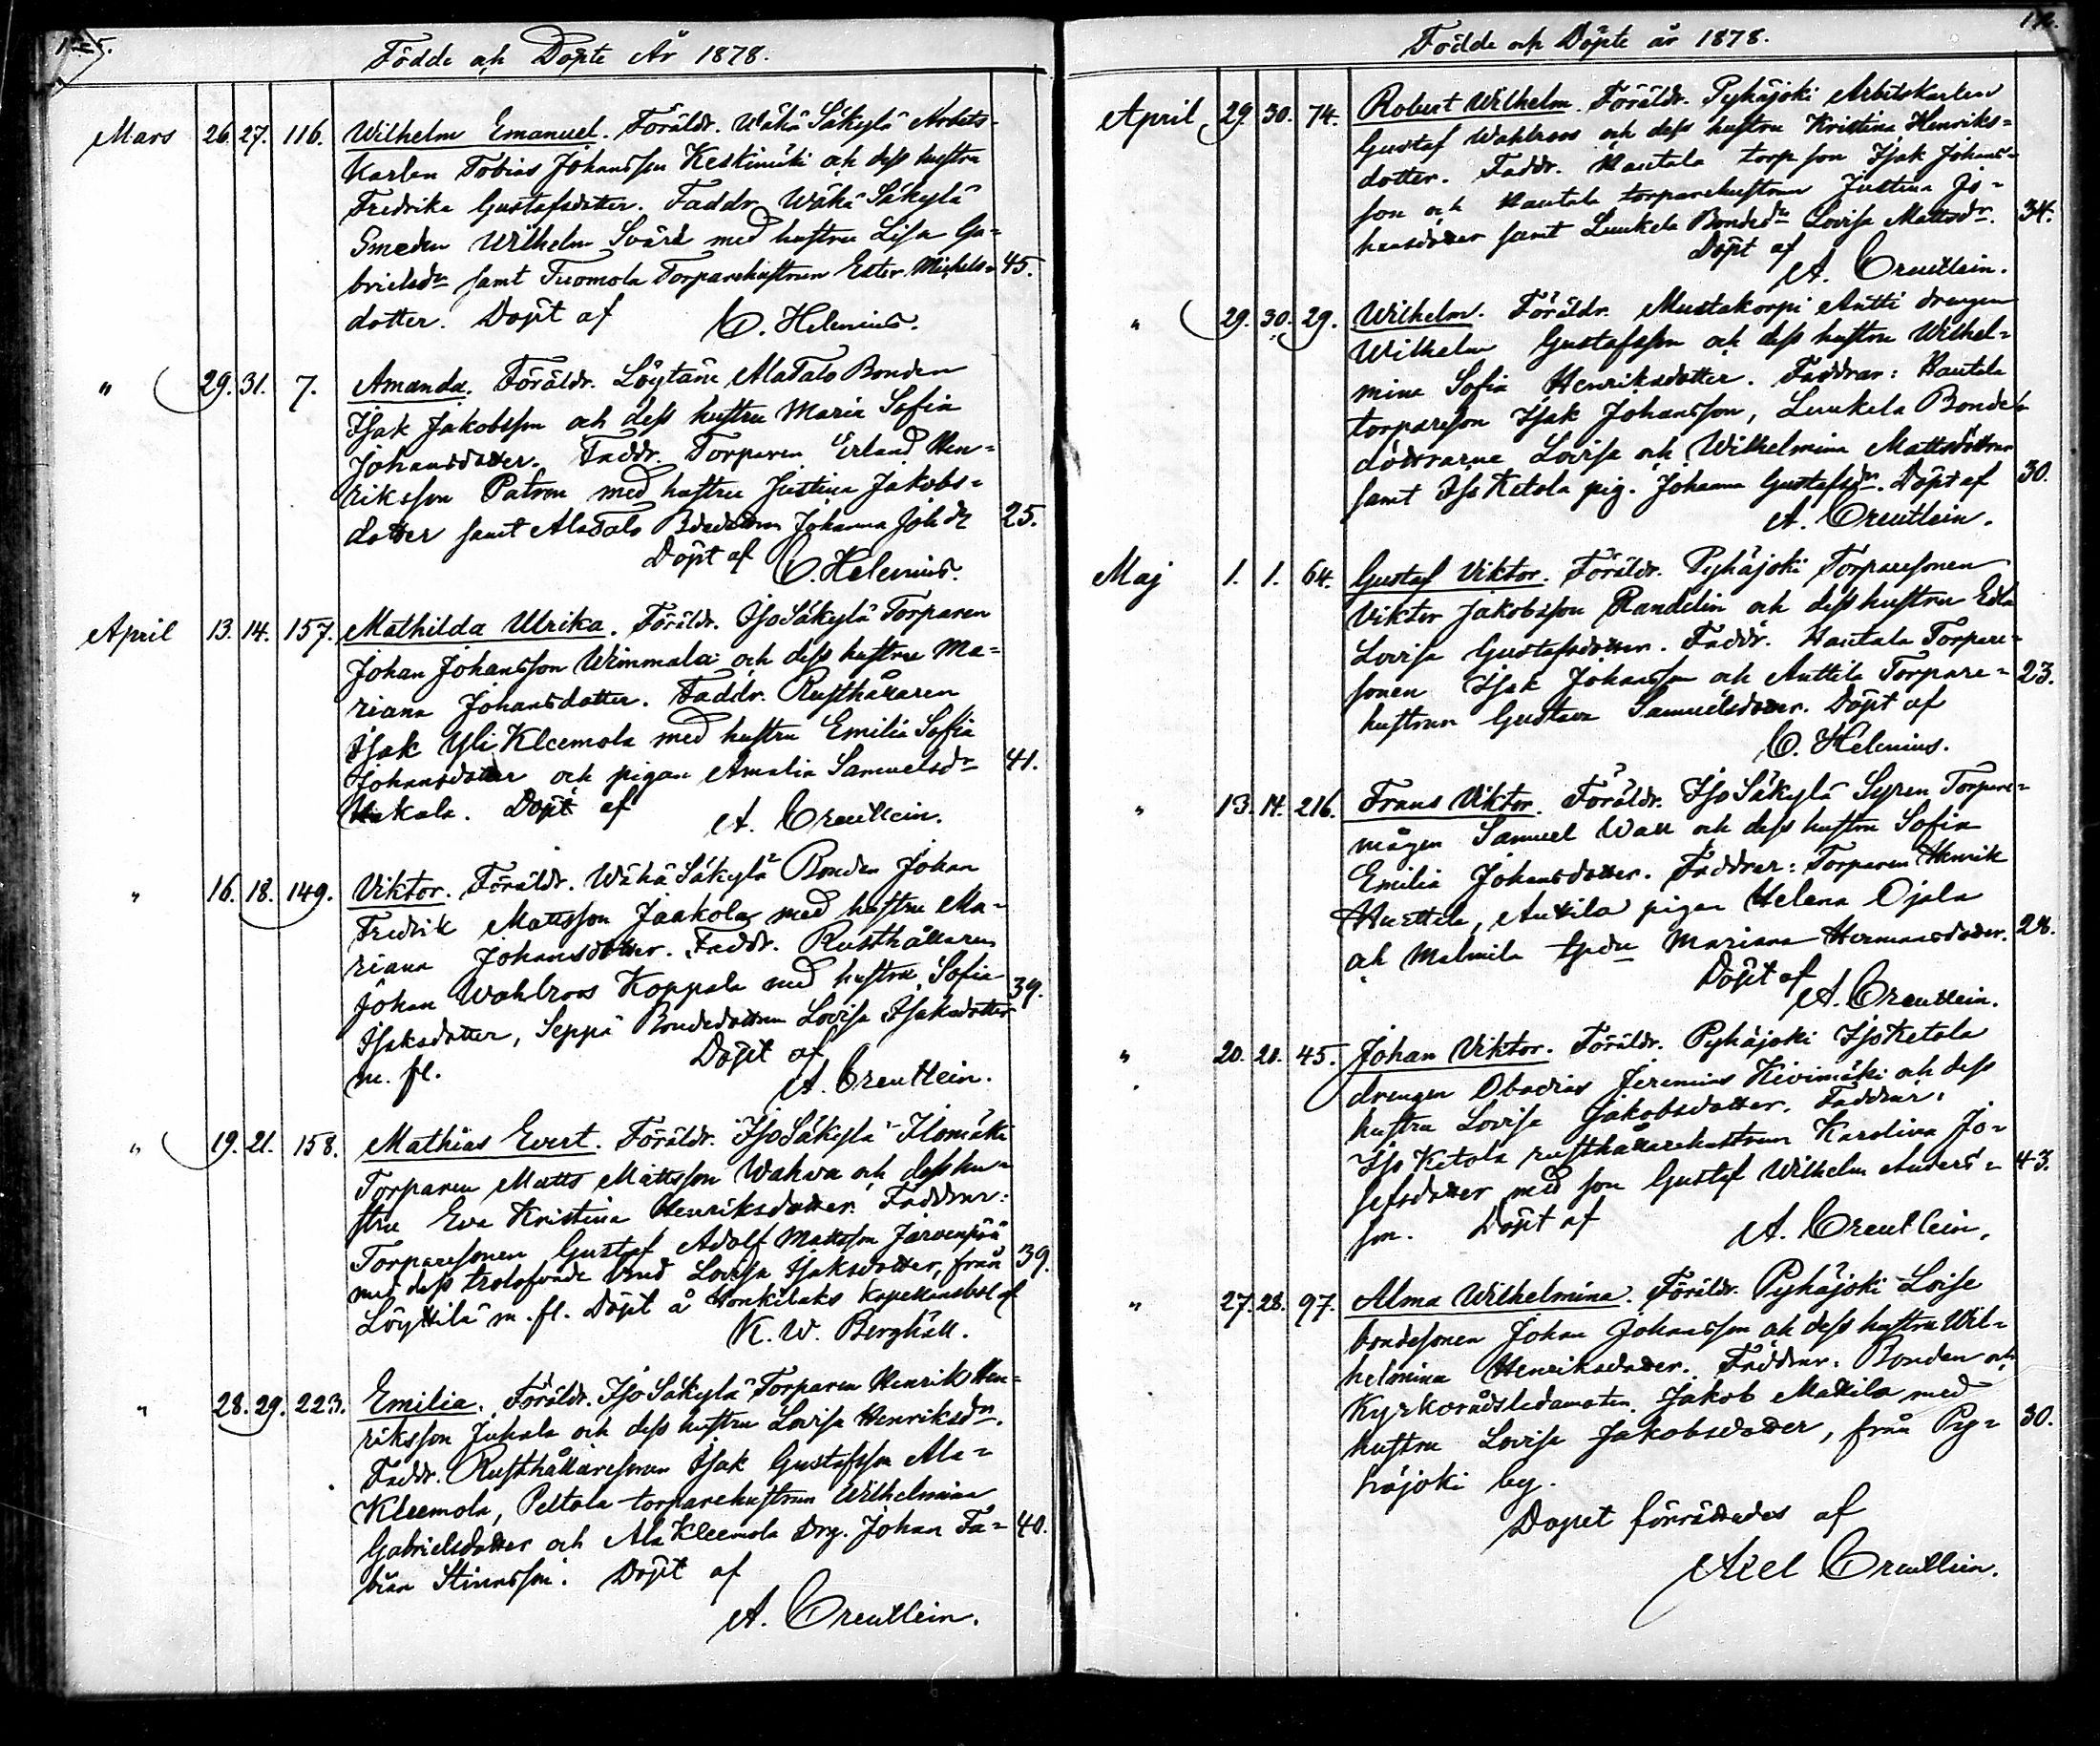 Födde och Döpte År 1878.
Mars 26. 27. 116. Wilhelm Emanuel. Föräldr. Wähä Säkylä Arbets-
karlen Tobias Johansson Keskimäki och dess hustru
Fredrika Gustafsdotter. Faddr. Wähä Säkylä
Smeden Wilhelm Svärd med hustru Lisa Ga-
brielsdr samt Tuomola Torparehustrun Ester Michels- 45.
dotter. Döpt af C. Helenius.
" 29. 31. 7. Amanda. Föräldr. Löytäne AlaTalo Bonden
Isak Jakobsson och dess hustru Maria Sofia
Johansdotter. Faddr. Torparen Erland Hen-
riksson Patron med hustru Justina Jakobs-
dotter samt AlaTalo Johanna Joh.dr 25.
Döpt af C. Helenius.
April 13. 14. 157. Mathilda Ulrika. Föräldr. Iso Säkylä Torparen
Johan Johansson Wimmala och dess hustru Ma-
riana Johansdotter. Faddr. Rusthållaren
Isak Yli Kleemola med hustru Emilia Sofia
Johansdotter och pigan Amalia Samuelsdr 41.
Uskala. Döpt af A. Creutlein.
" 16. 18. 149. Viktor. Föräldr. Wähä Säkylä Bonden Johan
Fredrik Mattsson Jaakola med hustru Ma-
riana Johansdotter. Faddr. Rusthållaren
Johan Wahlroos Koppala med hustru Sofia 39.
Isaksdotter, Seppä Bondedottren Lovisa Isaksdotter
m. fl. Döpt af
A. Creutlein.
" 19. 21. 158. Mathias Evert. Föräldr. Iso Säkylä Ilomäki
Torparen Matts Mattsson Wahva och dess hu-
stru Eva Kristina Henriksdotter. Faddrar:
Torparesonen Gustaf Adolf Mattsson Järvenpää 39.
med dess trolofvade brud Lovisa Isaksdotter, från
Löyttilä m. fl. Döpt å Honkilaks Kapellansbol af
K. W. Berghäll.
" 28. 29. 223. Emilia. Föräldr. Iso Säkylä Torparen Henrik Hen-
riksson Juhala och dess hustru Lovisa Henriksdr.
Faddr. Rusthållaresonen Isak Gustafsson Ala-
Kleemola, Peltola torparehustrun Wilhelmina
Gabrielsdotter och Ala Kleemola Drg. Johan Fa- 40.
bian Stinusson. Döpt af
A. Creutlein.
Födde och Döpte år 1878.
April 29. 30. 74. Robert Wilhelm. Föräldr. Pyhäjoki Arbetskarlen
Gustaf Wahlroos och dess hustru Kristina Henriks-
dotter. Faddr. Hautala torp son Isak Johans-
son och Hautala torparehustrun Justina Jo-
hansdotter samt Luukela Bondedr Lovisa Mattsdr. 34.
Döpt af
A. Creutlein.
" 29. 30. 29. Wilhelm. Föräldr. Mustakorpi Antti drengen
Wilhelm Gustafsson och dess hustru Wilhel-
mina Sofia Henriksdotter. Faddrar: Hautala
torpareson Isak Johansson, Luukela Bonde
döttrarne Lovisa och Wilhelmina Mattsdöttrar
samt Iso Ketola pig. Johanna Gustafsdr. Döpt af 30.
A. Creutlein.
Maj 1. 1. 64. Gustaf Viktor. Föräldr. Pyhäjoki Torparesonen
Viktor Jakobsson Randelin och dess hustru Edla
Lovisa Gustafsdotter. Faddr. Hautala Torpare-
sonen Isak Johansson och Anttila Torpare- 23.
hustrun Gustava Samuelsdotter. Döpt af
C. Helenius.
" 13. 14. 216. Frans Viktor. Föräldr. Iso Säkylä Sypen Torpare-
mågen Samuel Wall och dess hustru Sofia
Emilia Johansdotter. Faddrar: Torparen Henrik
Hurttila, Anttila pigan Helena Ojala
och Malmila Mariana Hermansdotter. 28.
Döpt af
A. Creutlein.
" 20. 20. 45. Johan Viktor. Föräldr. Pyhäjoki Iso Ketola
drengen Obadias Jeremias Kivimäki och dess
hustru Lovisa Jakobsdotter. Faddrar:
Iso Ketola rusthållarehustrun Karolina Jo-
sefsdotter med son Gustaf Wilhelm Anders- 43.
son. Döpt af A. Creutlein.
" 27. 28. 97. Alma Wilhelmina. Föräldr. Pyhäjoki Loise
bondesonen Johan Johansson och dess hustru Wil-
helmina Henriksdotter. Faddrar: Bonden och
Kyrkorådsledamoten Jakob Mattila med
hustru Lovisa Jakobsdotter, från Py- 30.
häjoki by.
Dopet förrättades af
Axel Creutlein.